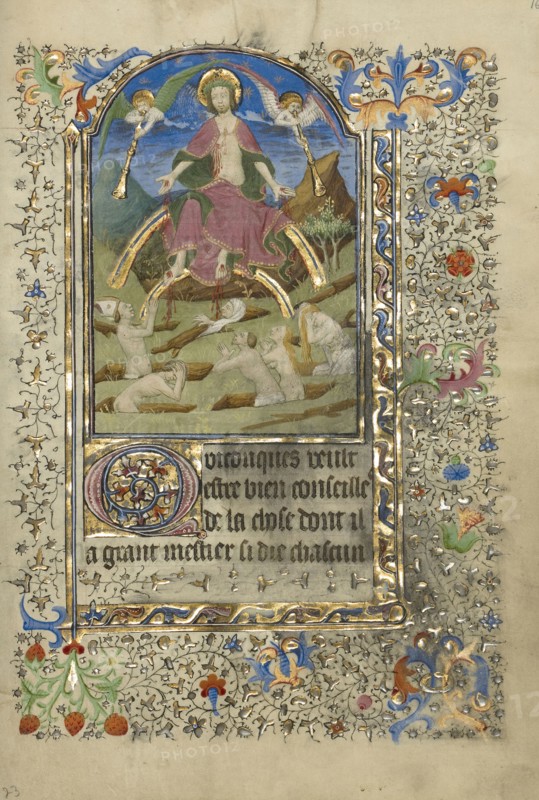 16
PHOTO12
Quiconques veult
estre bien conseille
de la chose dont il
a grant mestier si die chascun
PHOTO12
23